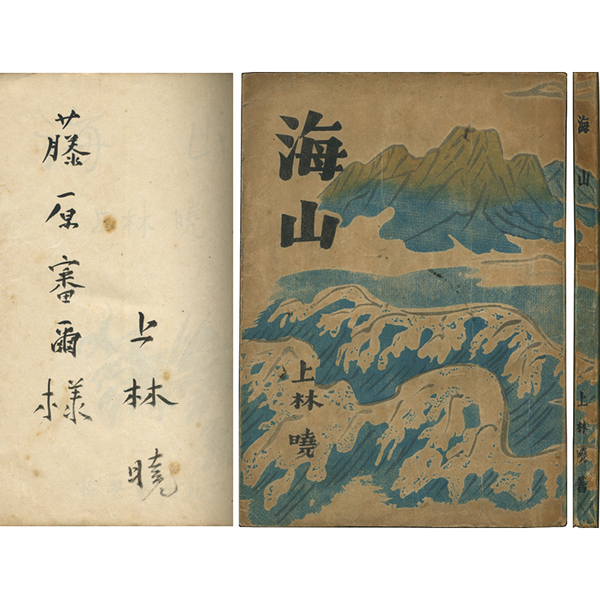 藤原審爾様
上林曉
海山
上林曉
海山
上林曉著